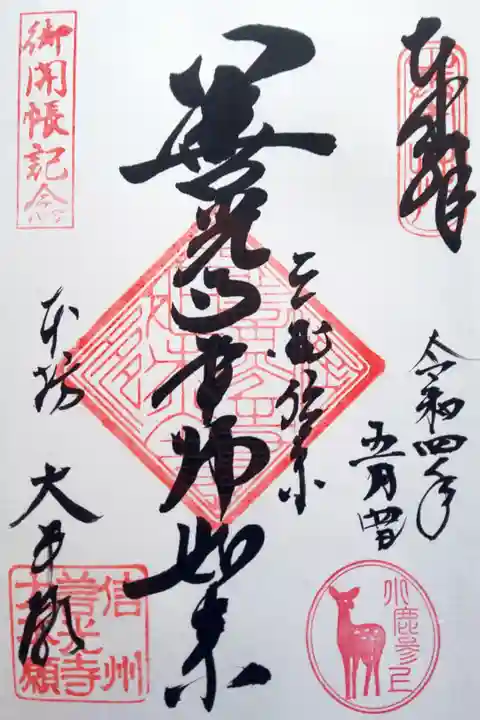 奉拝
令和四年
五月
三国伝来
善光寺本師如来
御開帳記念
本坊
大本願
信州
善光寺
大本願
小鹿参